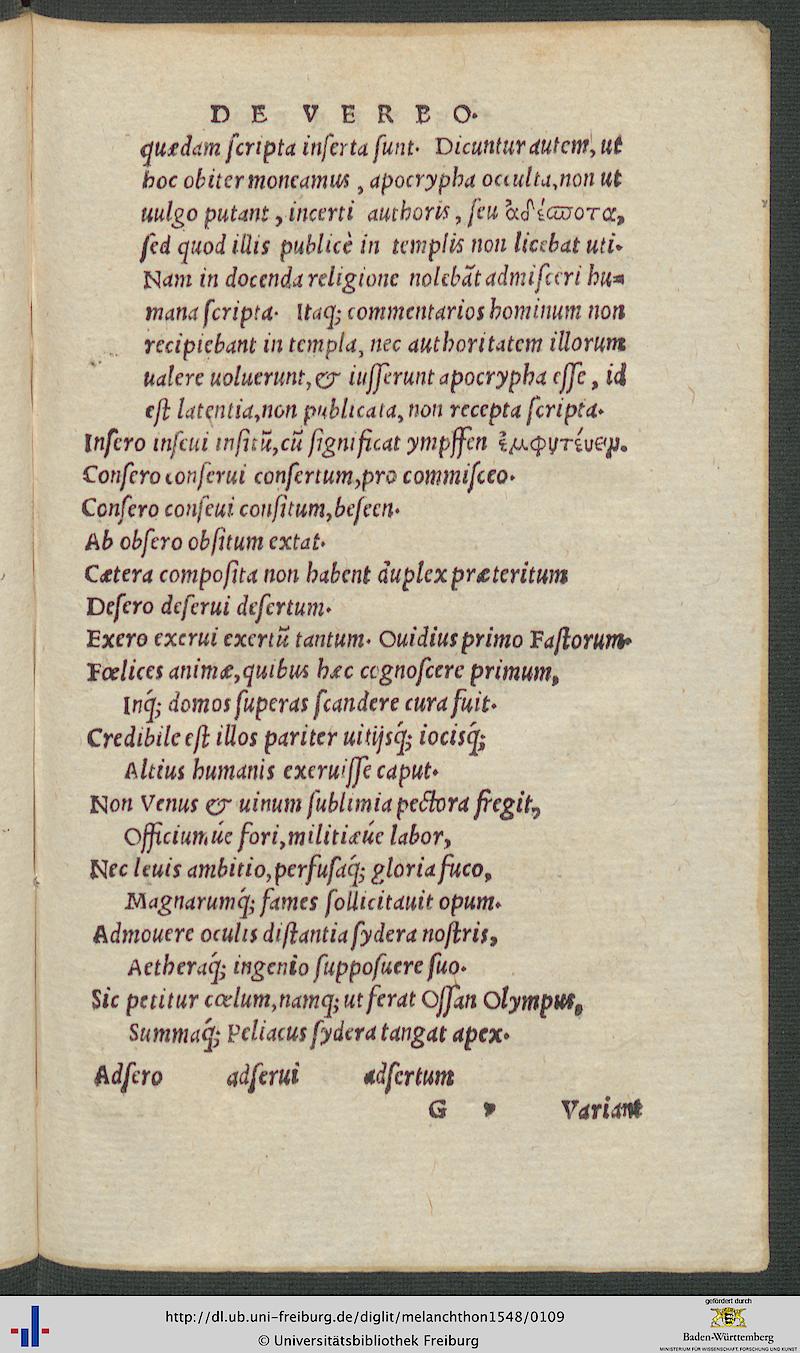 DE VERBO.
quædam ſcripta inſerta ſunt. Dicuntur autem, ut
hoc obiter moneamus, apocrypha occulta, non ut
uulgo putant, incerti authoris, ſeu ἀδέϖοτα,
ſed quod illis publicè in templis non licebat uti.
Nam in docenda religione nolebãt admiſceri hu=
mana ſcripta. Itaq; commentarios hominum non
recipiebant in templa, nec authoritatem illorum
ualere uoluerunt, & iuſſerunt apocrypha eſſe, id
eſt latentia, non publicata, non recepta ſcripta.
Inſero inſeui inſitũ, cũ ſignificat ympffen ἐμφυτέυειν.
Conſero conſerui conſertum, pro commiſceo.
Conſero conſeui conſitum, beſeen.
Ab obſero obſitum extat.
Cætera compoſita non habent duplex præteritum
Deſero deſerui deſertum.
Exero exerui exertũ tantum. Ouidius primo Faſtorum.
Fœlices animæ, quibus hæc cognoſcere primum,
Inq́; domos ſuperas ſcandere cura fuit.
Credibile eſt illos pariter uitijsq́; iocisq́;
Altius humanis exeruiſſe caput.
Non Venus & uinum ſublimia pectora fregit,
Officiumúe fori, militiæúe labor,
Nec leuis ambitio, perfuſaq́; gloria fuco,
Magnarumq́; fames ſollicitauit opum.
Admouere oculis diſtantia ſydera noſtris,
Aetheraq́; ingenio ſuppoſuere ſuo.
Sic petitur cœlum, namq; ut ferat Oſſan Olympus,
Summaq́; Peliacus ſydera tangat apex.
Adſero adſerui adſertum
G Variant
http://dl.ub.uni-freiburg.de/diglit/melanchthon1548/0109
© Universitätsbibliothek Freiburg
gefördert durch
Baden-Württemberg
MINISTERIUM FÜR WISSENSCHAFT, FORSCHUNG UND KUNST